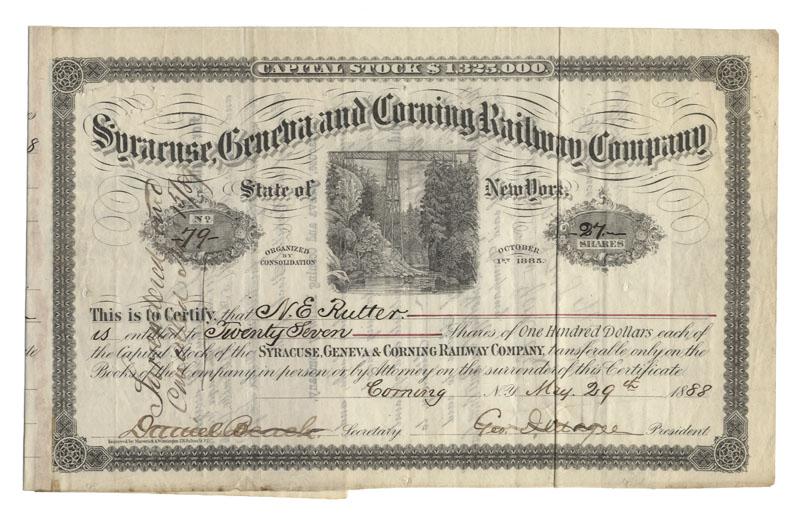 CAPITAL STOCK $1325,000.
Syracuse, Geneva and Corning Railway Company
State of New York,
No
-79-
-27-
SHARES
ORGANIZED
BY
CONSOLIDATION
OCTOBER
1st 1885.
This is to Certify, that N. E. Rutter.
is entitled to Twenty Seven Shares of One Hundred Dollars each of
the Capital Stock of the SYRACUSE, GENEVA & CORNING RAILWAY COMPANY, tansferable only on the
Books of the Company in person or by Attorney on the surrender of this Certificate
Corning N.Y. May 29th 1888
Daniel Beach Secretary Geo. J. Magee President